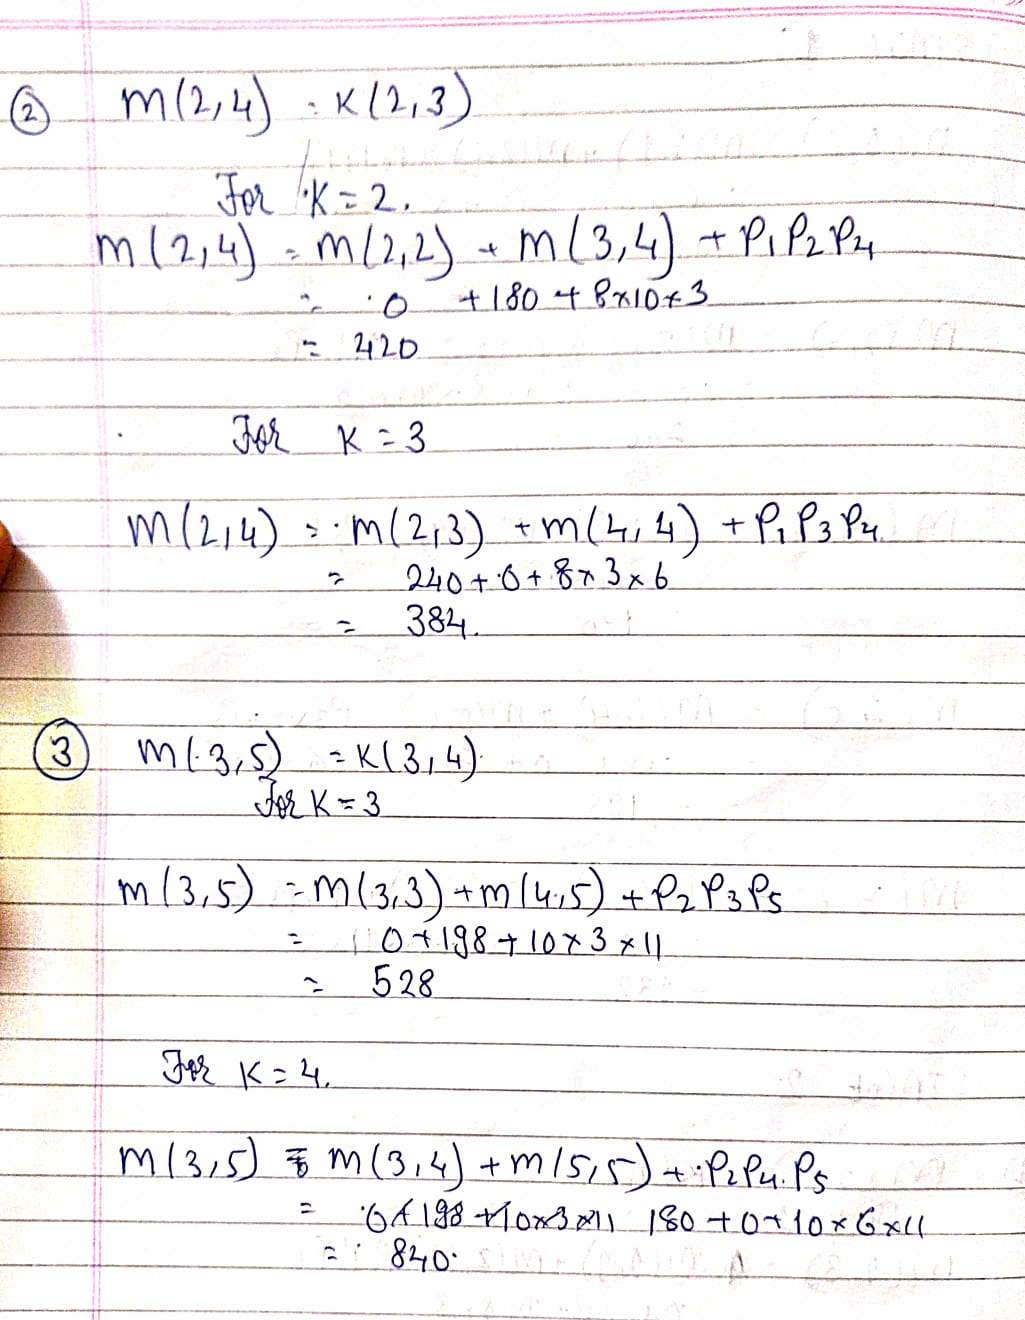 ② m(2,4) = K(2,3)
For K = 2.
m(2,4) = m(2,2) + m(3,4) + P₁P₂P₄
= 0 + 180 + 8×10×3
= 420
For K = 3
m(2,4) = m(2,3) + m(4,4) + P₁P₃P₄
= 240 + 0 + 8×3×6
= 384.
③ m(3,5) = K(3,4)
For K = 3
m(3,5) = m(3,3) + m(4,5) + P₂P₃P₅
= 0 + 198 + 10×3×11
= 528
For K = 4.
m(3,5) = m(3,4) + m(5,5) + P₂P₄.P₅
= 0+198+10×3×11 180+0+10×6×11
= 840.